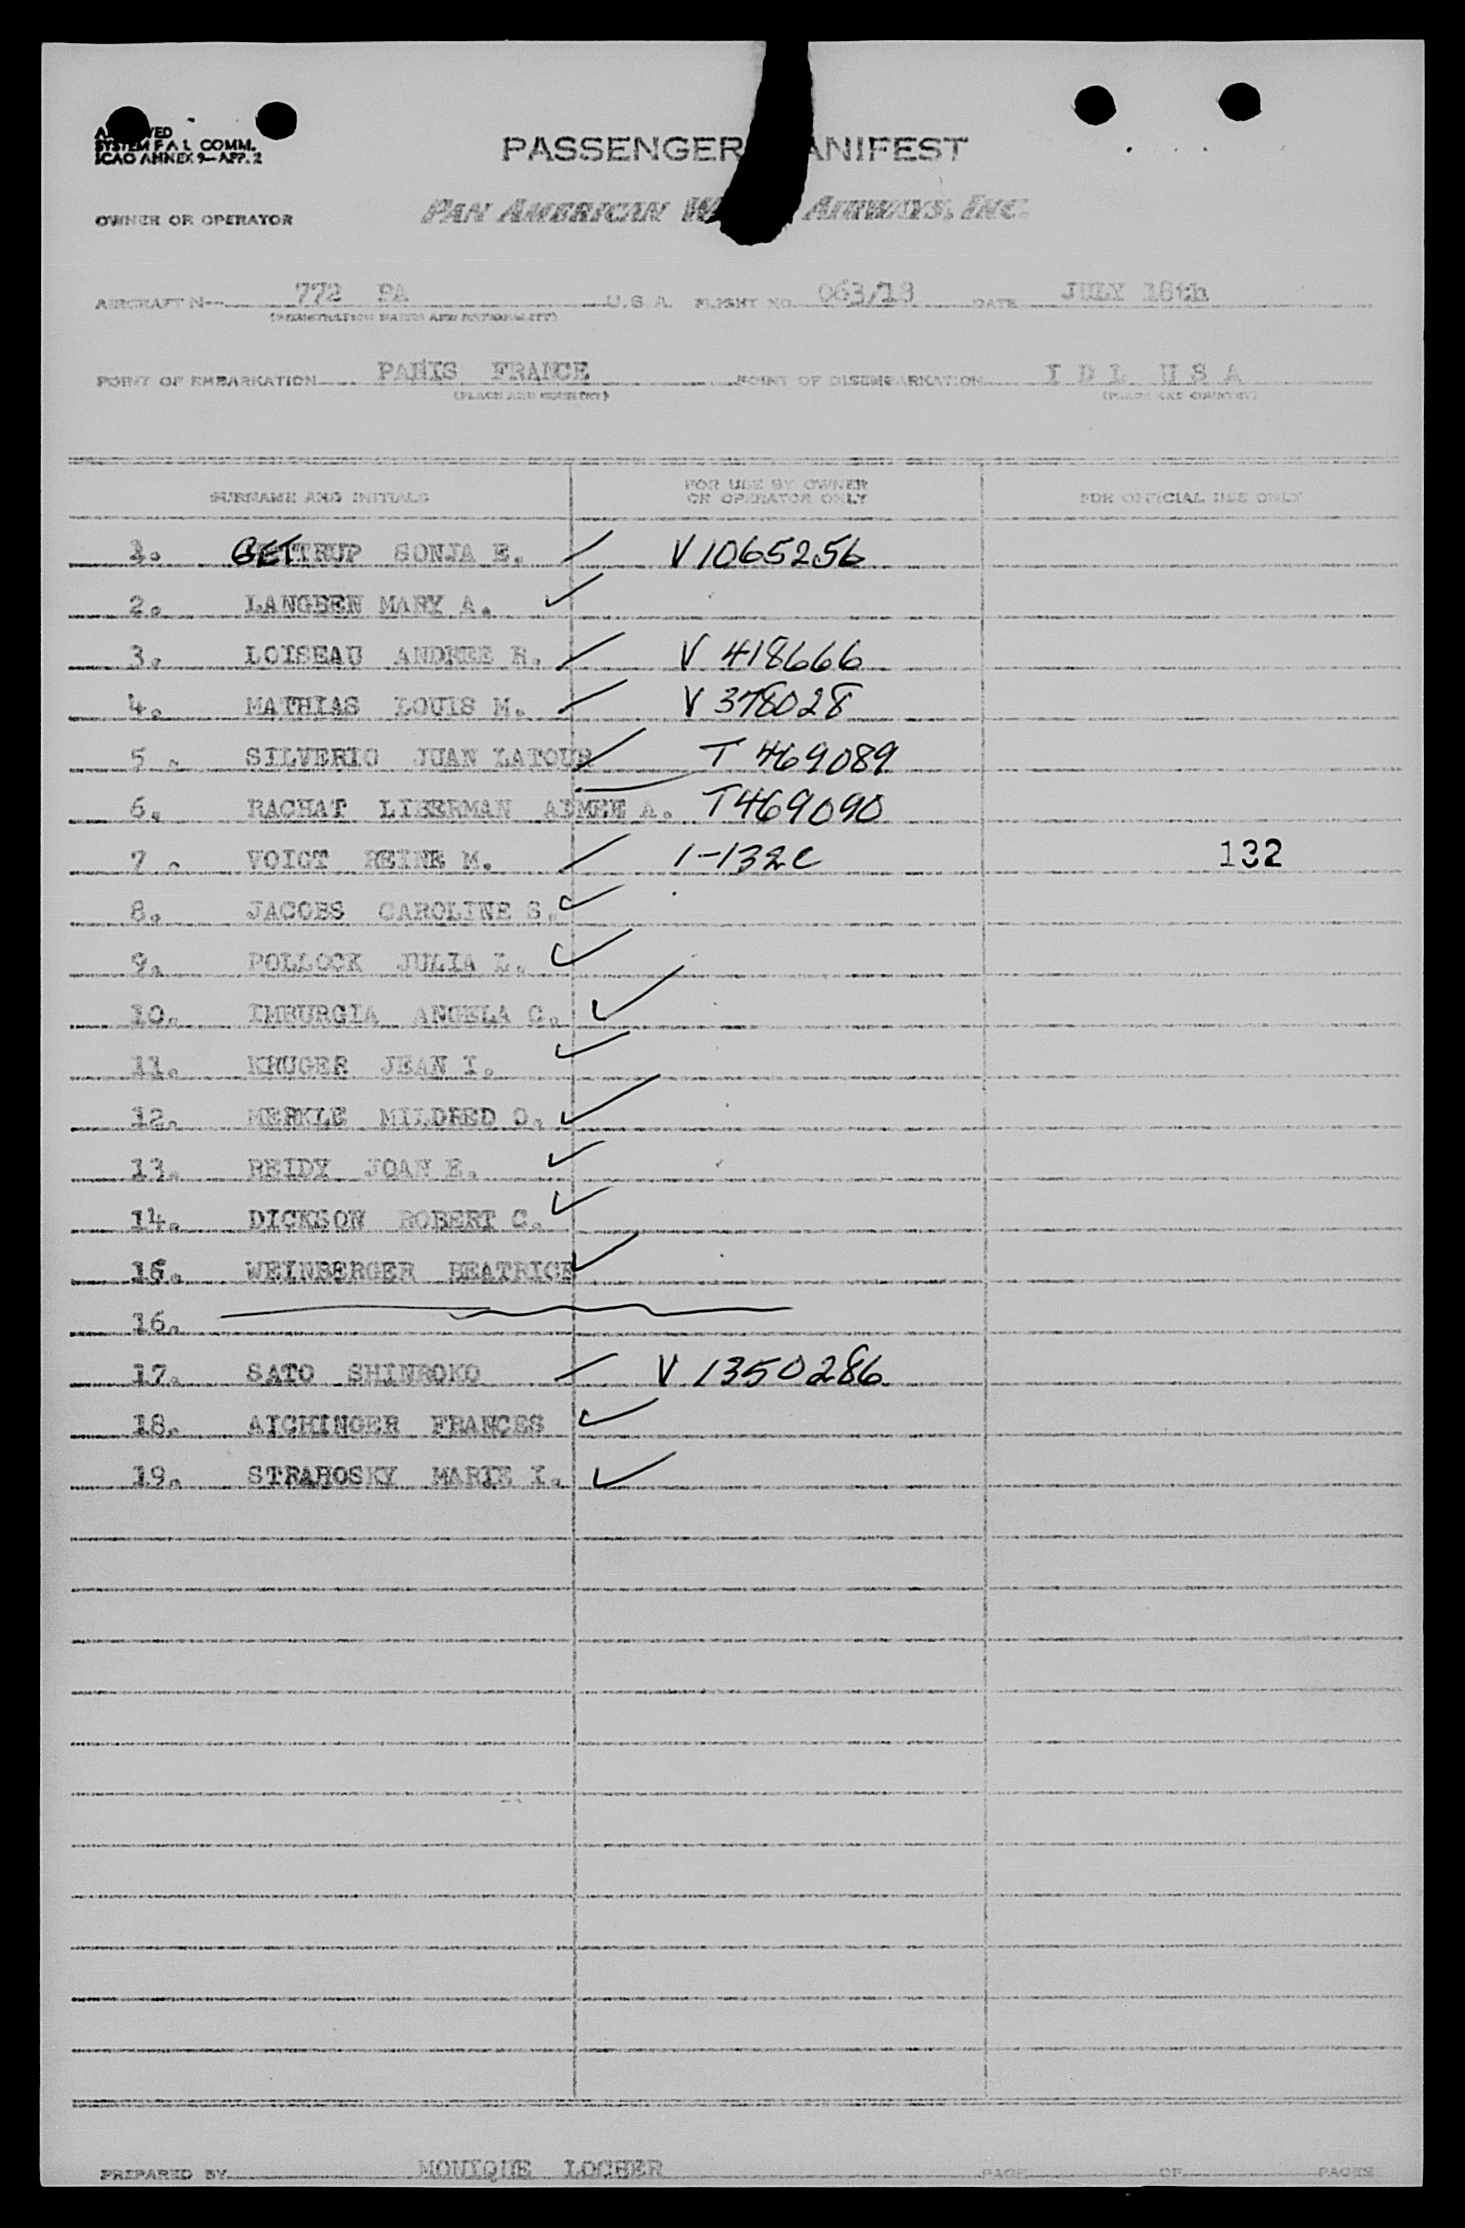 SYSTEM F A L COMM.
ICAO ANNEX 9—APP. 2
PASSENGER ANIFEST
OWNER OR OPERATOR
PAN AMERICAN W AIRWAYS, INC.
AIRCRAFT N— 772 PA U. S. A. FLIGHT NO. 063/18 DATE JULY 18th
(REGISTRATION MARKS AND NATIONALITY)
POINT OF EMBARKATION PARIS FRANCE POINT OF DISEMBARKATION I D L U S A
(PLACE AND COUNTRY) (PLACE AND COUNTRY)
SURNAME AND INITIALS FOR USE BY OWNER OR OPERATOR ONLY FOR OFFICIAL USE ONLY
1. GETTRUP SONJA E. V 1065256
2. LANGEEN MARY A.
3. LOISEAU ANDREE R. V 418666
4. MATHIAS LOUIS M. V 378028
5. SILVERIO JUAN LATOUR T 469089
6. RACHAT LIBERMAN AIMEE A. T469090
7. VOIGT REINE M. 1-132C 132
8. JACOBS CAROLINE S.
9. POLLOCK JULIA L.
10. IMBURGIA ANGELA C.
11. KRUGER JEAN I.
12. MERKLE MILDRED O.
13. REIDY JOAN E.
14. DICKSON ROBERT C.
15. WEINBERGER BEATRICE
16.
17. SATO SHINROKO V 1350286
18. AICHINGER FRANCES
19. STRAROSKY MARIE I.
PREPARED BY MONIQUE LOCHER PAGE OF PAGES